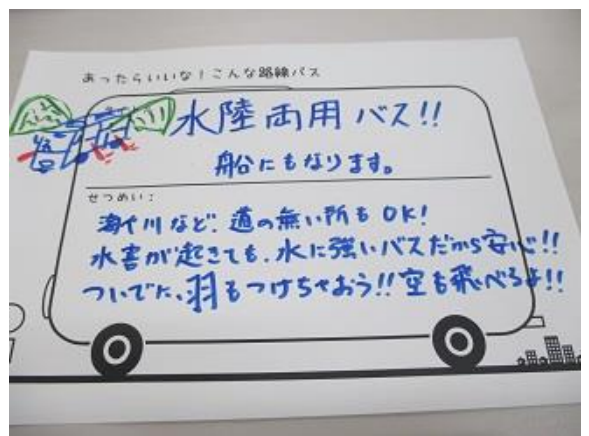 あったらいいな！こんな路線バス
水陸両用バス!!
船にもなります。
せつめい：
海や川など、道の無い所もOK!
水害が起きても、水に強いバスだから安心!!
ついでに、羽もつけちゃおう!!空も飛べるよ!!